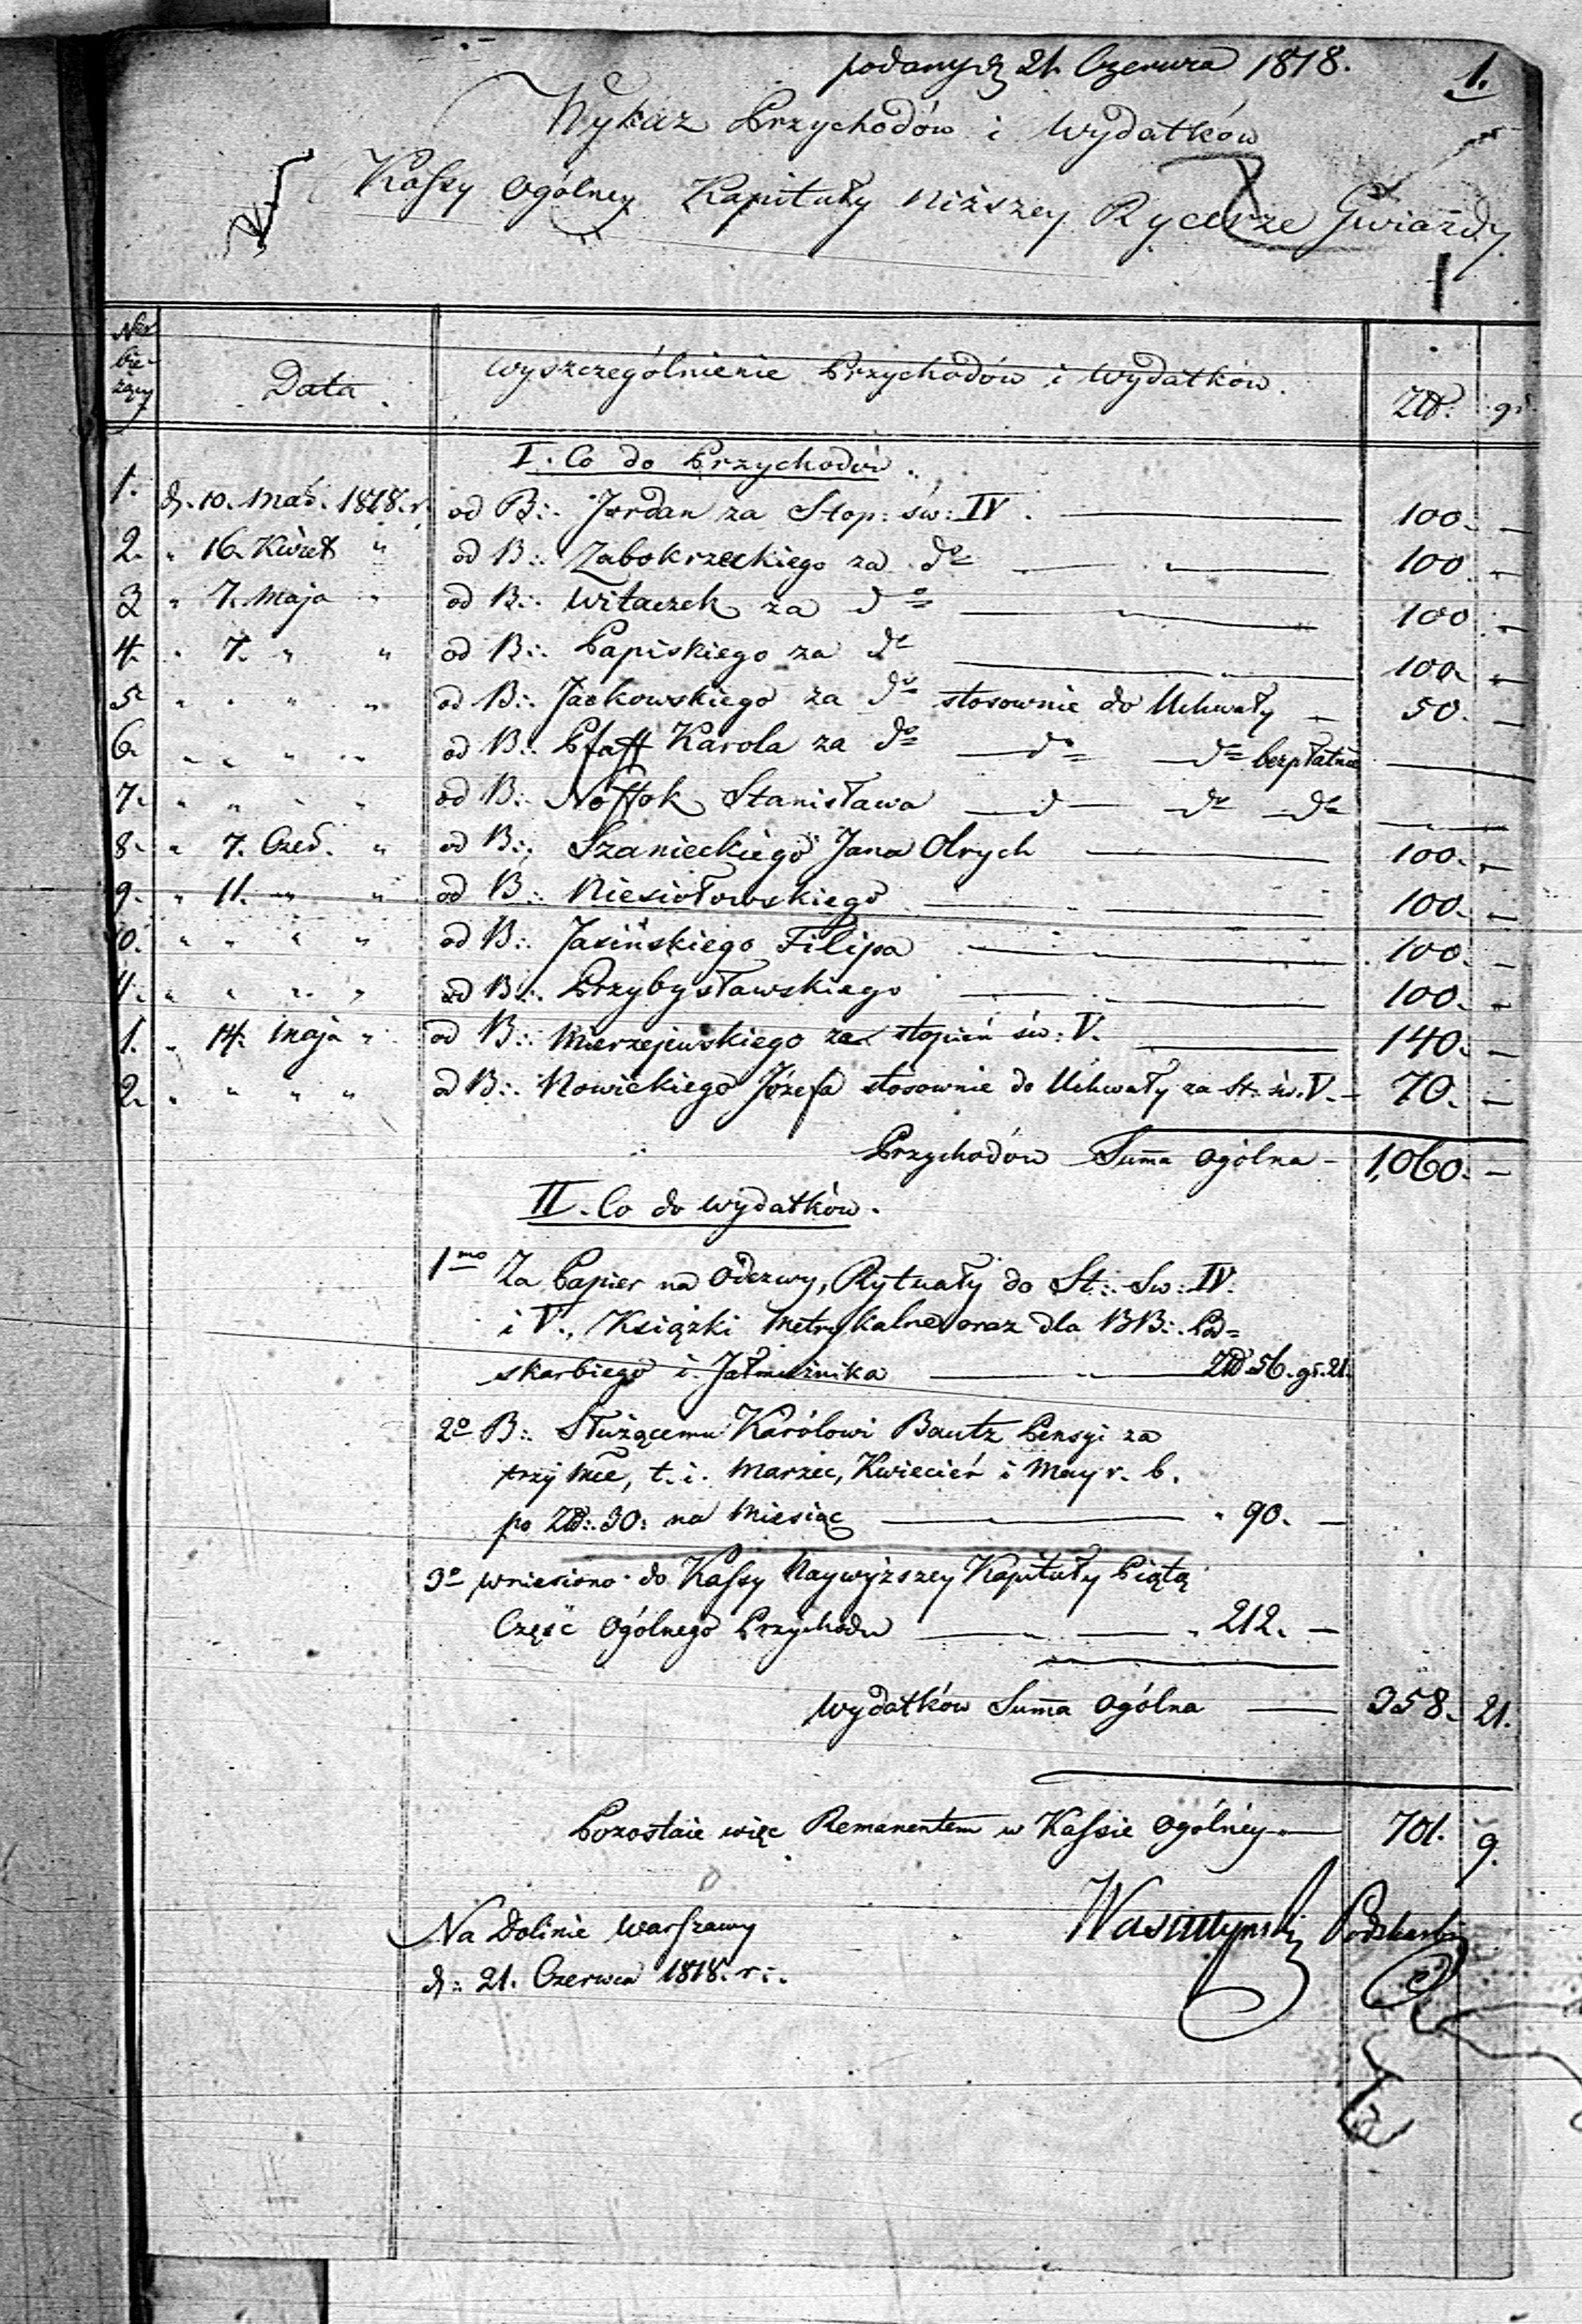 podany d. 21. Czerwca 1818.
1.
Wykaz Przychodów i Wydatków
Kassy Ogólney Kapituły Niższey Rycerze Gwiazdy
Ner bie- żący
Data
Wyszczególnienie Przychodów i Wydatków.
Złł. gr.
I. Co do Przychodów.
1. d. 10. Mar. 1818. r. od B∴ Jordan za Stop: św: IV. 100. —
2. " 16. Kwiet " od B∴ Zabokrzeckiego za do 100 —
3 " 7. Maja " od B∴ Witaczek za do 100 —
4. " 7. " " od B∴ Papiskiego za do 100 —
5. " " " " od B∴ Jackowskiego za do stosownie do Uchwały — 50. —
6. " " " " od B∴ Pfaff Karola za do — do — do bezpłatnie —
7. " " " " od B∴ Noffok Stanisława — do — do — do —
8. " 7. Czer. " od B∴ Szanieckiego Jana Olrych 100. —
9. " 11. " " od B∴ Niesiołowskiego 100. —
10. " " " " od B∴ Jasińskiego Filipa 100. —
11. " " " " od B∴ Przybysławskiego 100. —
1. " 14. Maja " od B∴ Mierzejewskiego za stopień św: V. 140. —
2. " " " " od B∴ Nowickiego Józefa stosownie do Uchwały za St: św. V. — 70. —
Przychodów Summa Ogólna — 1,060. —
II. Co do Wydatków.
1mo Za Papier na Odezwy, Rytuały do St∴ Sw: IV.
i V., Książki Metrykalne oraz dla BB∴ Pod=
skarbiego i Jałmużnika — Złł. 56. gr. 21.
2o B∴ Służącemu Karolowi Bautz Pensyi za
trzy Mce, t. i. Marzec, Kwiecień i May r. b.
po Złł: 30: na Miesiąc — " 90. —
3o wniesiono do Kassy Naywyższey Kapituły Piątą
Część Ogólnego Przychodu — " 212. —
Wydatków Summa Ogólna — 358. 21.
Pozostaie więc Remanentem w Kassie Ogólney — 701. 9.
Na Dolinie Warszawy
d: 21. Czerwca 1818. r∴
Wasiutyński Podskarbi